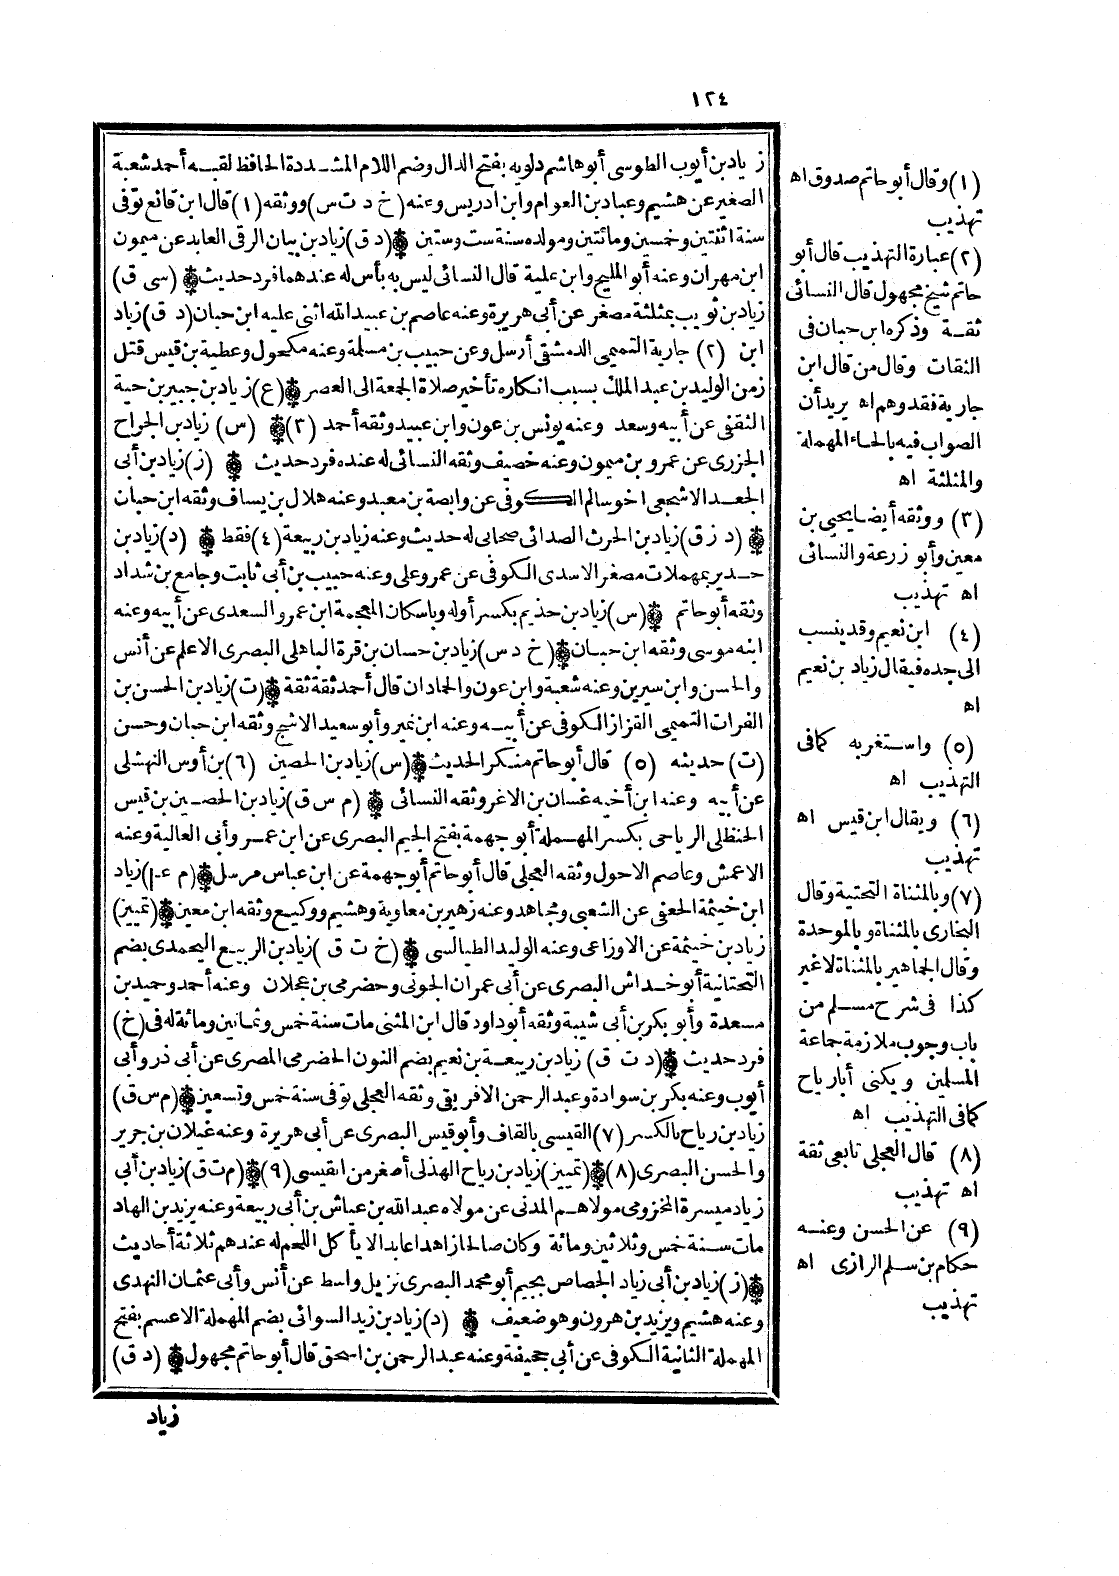 ١٢٤
زياد بن أيوب الطوسى أبو هاشم دلويه بفتح الدال وضم اللام المشددة الحافظ لقبه أحمد شعبة
الصغير عن هشيم وعباد بن العوام وابن ادريس وعنه (خ د ت س) ووثقه (١) قال ابن قانع توفى
سنة اثنتين وخمسين ومائتين ومولده سنة ست وستين ۞ (د ق) زياد بن بيان الرقى العابد عن ميمون
ابن مهران وعنه أبو المليح وابن علية قال النسائى ليس به بأس له عندهما فرد حديث ۞ (سى ق)
زياد بن ثويب بمثلثة مصغر عن أبى هريرة وعنه عاصم بن عبيد الله اثنى عليه ابن حبان (د ق) زياد
ابن (٢) جارية التميمى الدمشقى أرسل وعن حبيب بن مسلمة وعنه مكحول وعطية بن قيس قتل
زمن الوليد بن عبد الملك بسبب انكاره تأخير صلاة الجمعة الى العصر ۞ (ع) زياد بن جبير بن حية
الثقفى عن أبيه وسعد وعنه يونس بن عون وابن عبيد وثقه أحمد (٣) ۞ (س) زياد بن الجراح
الجزرى عن عمرو بن ميمون وعنه خصيف وثقه النسائى له عنده فرد حديث ۞ (ز) زياد بن أبى
الجعد الاشجعى اخو سالم الكوفى عن وابصة بن معبد وعنه هلال بن يساف وثقه ابن حبان
۞ (د ز ق) زياد بن الحرث الصدائى صحابى له حديث وعنه زياد بن ربيعة (٤) فقط ۞ (د) زياد بن
حدير بمهملات مصغر الاسدى الكوفى عن عمر وعلى وعنه حبيب بن أبى ثابت وجامع بن شداد
وثقه أبو حاتم ۞ (س) زياد بن حذيم بكسر أوله وباسكان المعجمة ابن عمرو السعدى عن أبيه وعنه
ابنه موسى وثقه ابن حبان ۞ (خ د س) زياد بن حسان بن قرة الباهلى البصرى الاعلم عن أنس
والحسن وابن سيرين وعنه شعبة وابن عون والحمادان قال أحمد ثقة ثقة ۞ (ت) زياد بن الحسن بن
الفرات التميمى القزاز الكوفى عن أبيه وعنه ابن نمير وأبو سعيد الاشج وثقه ابن حبان وحسن
(ت) حديثه (٥) قال أبو حاتم منكر الحديث ۞ (س) زياد بن الحصين (٦) بن أوس النهشلى
عن أبيه وعنه ابن أخيه غسان بن الاغر وثقه النسائى ۞ (م س ق) زياد بن الحصين بن قيس
الحنظلى الرياحى بكسر المهملة أبو جهمة بفتح الجيم البصرى عن ابن عمر وأبى العالية وعنه
الاعمش وعاصم الاحول وثقه العجلى قال أبو حاتم أبو جهمة عن ابن عباس مرسل ۞ (م عـ ا) زياد
ابن خيثمة الجعفى عن الشعبى ومجاهد وعنه زهير بن معاوية وهشيم ووكيع وثقه ابن معين ۞ (تمييز)
زياد بن خيثمة عن الاوزاعى وعنه الوليد الطيالسى ۞ (خ ت ق) زياد بن الربيع اليحمدى بضم
التحتانية أبو خداش البصرى عن أبى عمران الجونى وحضرمى بن عجلان وعنه أحمد وحميد بن
مسعدة وأبو بكر بن أبى شيبة وثقه أبو داود قال ابن المثنى مات سنة خمس وثمانين ومائة له فى (خ)
فرد حديث ۞ (د ت ق) زياد بن ربيعة بن نعيم بضم النون الحضرمى المصرى عن أبى ذر وأبى
أيوب وعنه بكر بن سوادة وعبد الرحمن الافريقى وثقه العجلى توفى سنة خمس وتسعين ۞ (م س ق)
زياد بن رياح بالكسر (٧) القيسى بالقاف وأبو قيس البصرى عن أبى هريرة وعنه غيلان بن جرير
والحسن البصرى (٨) ۞ (تمييز) زياد بن رياح الهذلى أصغر من القيسى (٩) ۞ (م ت ق) زياد بن أبى
زياد ميسرة المخزومى مولاهم المدنى عن مولاه عبد الله بن عياش بن أبى ربيعة وعنه يزيد بن الهاد
مات سنة خمس وثلاثين ومائة وكان صالحا زاهدا عابدا لا يأكل اللحم له عندهم ثلاثة أحاديث
۞ (ز) زياد بن أبى زياد الجصاص بجيم أبو محمد البصرى نزيل واسط عن أنس وأبى عثمان النهدى
وعنه هشيم ويزيد بن هرون وهو ضعيف ۞ (د) زياد بن زيد السوائى بضم المهملة الاعسم بفتح
المهملة الثانية الكوفى عن أبى جحيفة وعنه عبد الرحمن بن اسحق قال أبو حاتم مجهول ۞ (د ق)
زياد
(١) وقال أبو حاتم صدوق اه
تهذيب
(٢) عبارة التهذيب قال أبو
حاتم شيخ مجهول قال النسائى
ثقة وذكره ابن حبان فى
الثقات وقال من قال ابن
جارية فقد وهم اه يريد أن
الصواب فيه بالحاء المهملة
والمثلثة اه
(٣) ووثقه أيضا يحيى بن
معين وأبو زرعة والنسائى
اه تهذيب
(٤) ابن نعيم وقد ينسب
الى جده فيقال زياد بن نعيم
اه
(٥) واستغربه كما فى
التهذيب اه
(٦) ويقال ابن قيس اه
تهذيب
(٧) وبالمثناة التحتية وقال
البخارى بالمثناة وبالموحدة
وقال الجماهير بالمثناة لا غير
كذا فى شرح مسلم من
باب وجوب ملازمة جماعة
المسلمين ويكنى أبا رياح
كما فى التهذيب اه
(٨) قال العجلى تابعى ثقة
اه تهذيب
(٩) عن الحسن وعنه
حكام بن سلم الرازى اه
تهذيب